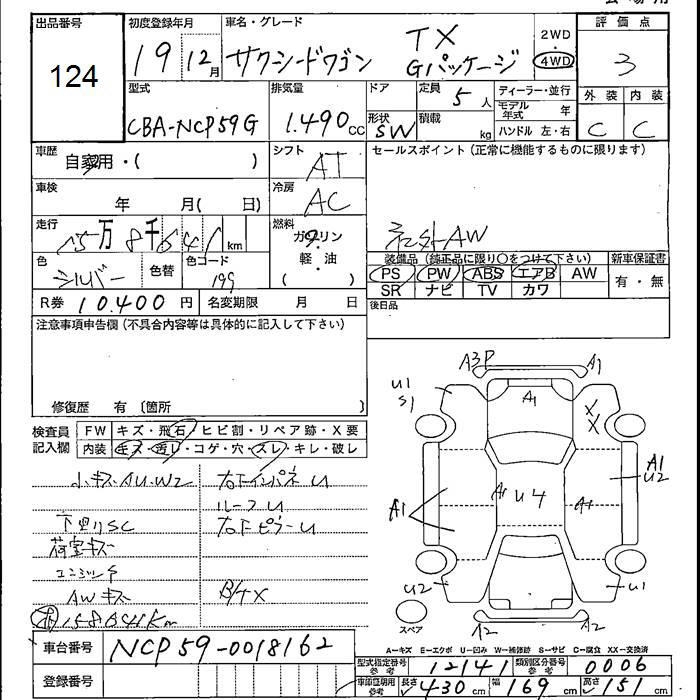 出品番号 初度登録年月 車名・グレード 評価点
124 19 12月 サクシードワゴン TX Gパッケージ 2WD 4WD 3
型式 排気量 ドア 定員 5人 ディーラー・並行 外装 内装
CBA-NCP59G 1.490cc 形状 SW 積載 kg モデル年式 年 ハンドル 左・右 C C
車歴 自家用・( ) シフト AT セールスポイント(正常に機能するものに限ります)
車検 年 月( 日) 冷房 AC
走行 15万8千641km 燃料 ガソリン・軽・油 ( ) 社外AW
色 シルバー 色替 色コード 199 装備品(純正品に限り○をつけて下さい) 新車保証書
PS PW ABS エアB AW 有・無
R券 10.400円 名変期限 月 日 SR ナビ TV カワ
注意事項申告欄(不具合内容等は具体的に記入して下さい) 後日品
修復歴 有 〔箇所 〕
検査員記入欄 FW キズ・飛石・ヒビ割・リペア跡・X要
内装 キズ・汚レ・コゲ・穴・スレ・キレ・破レ
小キズAU.W2 右下インパネU
ルーフU
下回りSC 右下ピラーU
荷室キズ
AWキズ B/TX
158641Km
A3P A1
U1 S1 A1 X X
A1 A1 U4 A1 A1 U2
U2 U1
スペア A2 A2
A-キズ E-エクボ U-凹み W-補修跡 S-サビ C-腐食 XX-交換済
車台番号 NCP59-0018162
型式指定番号 参考 12141 類別区分番号 参考 0006
登録番号 車部登期用 参考 長さ 430cm 幅 169cm 高さ 151cm